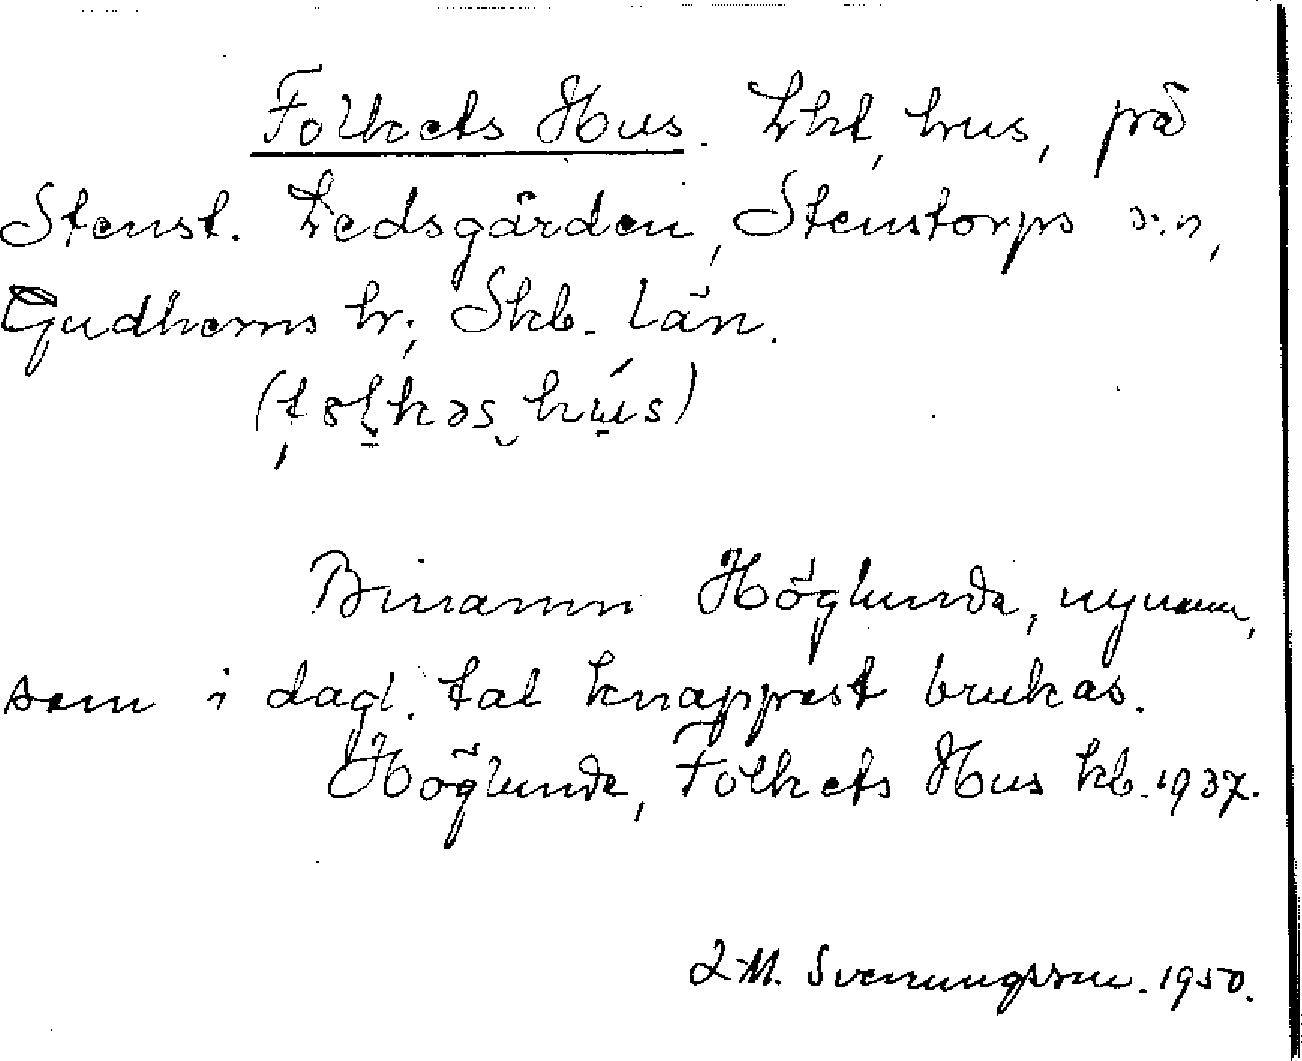 Folkets Hus. Lht, hus, på
Stenst. Ledsgården, Stenstorps s:n,
Gudhems hr; Skb. län.
(fɵlkəs hús)
Binamn Höglunda, nynamn,
som i dagl. tal knappast brukas.
Höglunda, Folkets Hus kb. 1937.
M. Svenungsson. 1950.